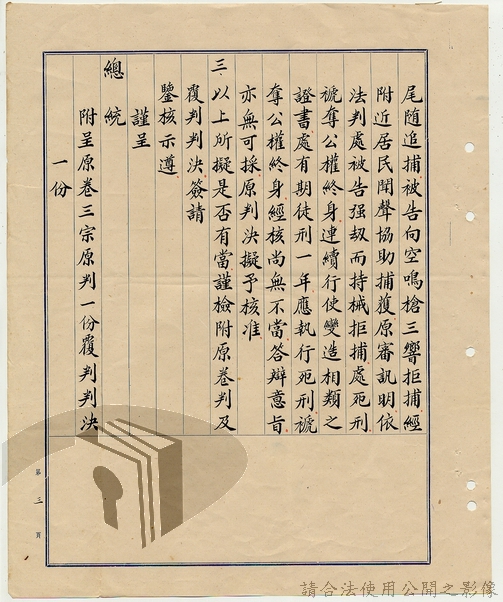 尾随追捕被告向空鳴槍三響拒捕經
附近居民聞聲協助捕獲原審訊明依
法判處被告强刼而持械拒捕處死刑
褫奪公權終身連續行使變造相類之
證書處有期徒刑一年應執行死刑褫
奪公權終身經核尚無不當答辯意旨
亦無可採原判決擬予核准
三、以上所擬是否有當謹檢附原卷判及
覆判判決簽請
鑒核示遵
謹呈
總統
附呈原卷三宗原判一份覆判判決
一份
第三頁
請合法使用公開之影像